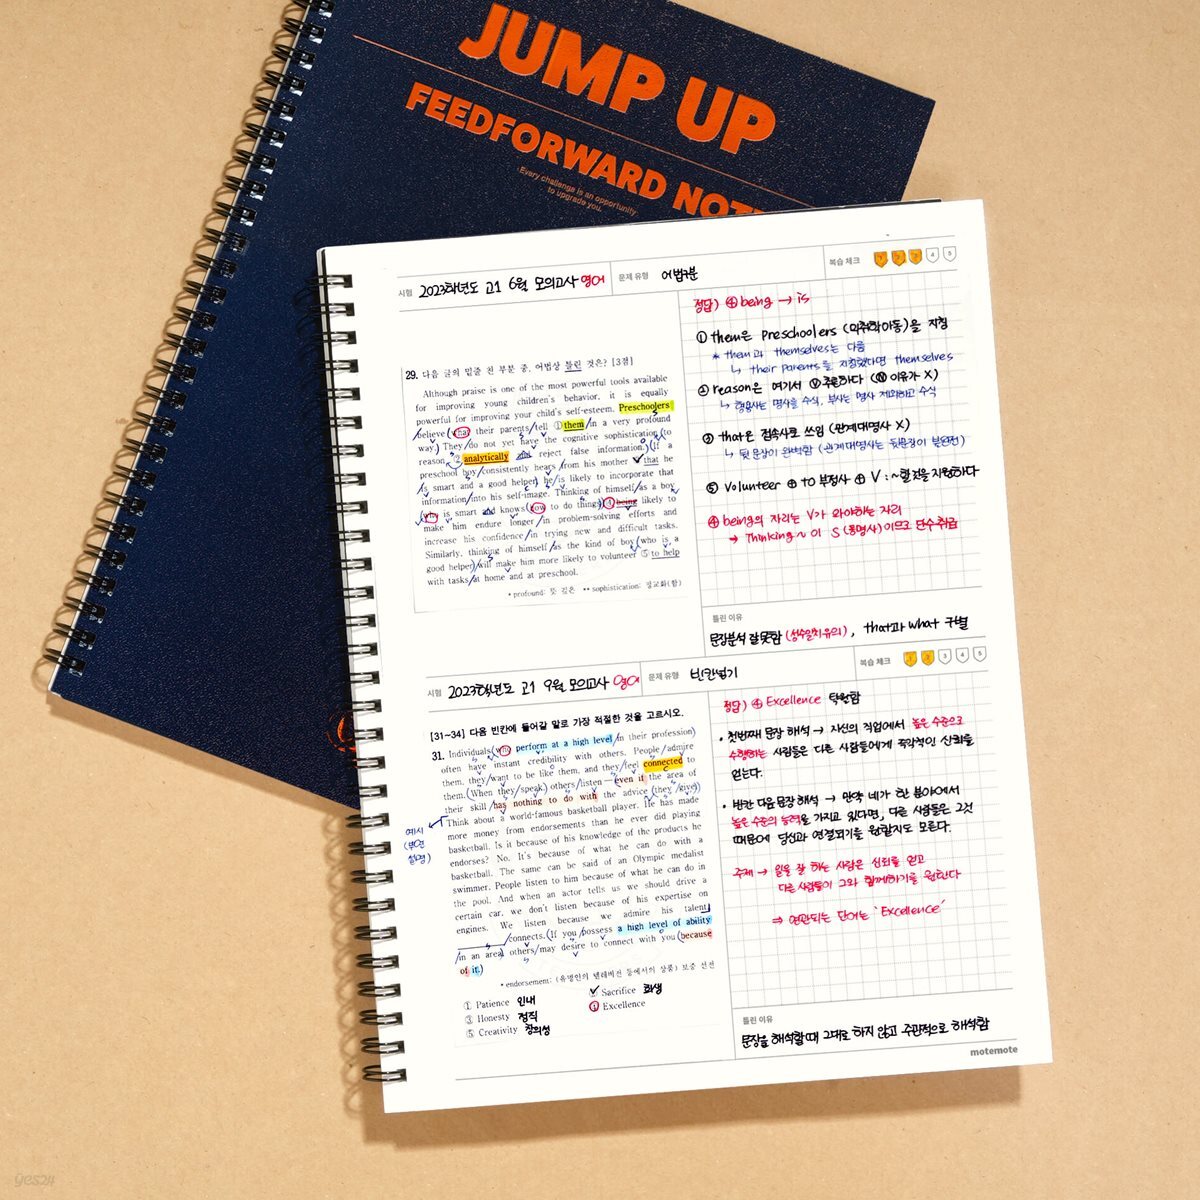 JUMP UP
FEEDFORWARD NOTE
Every challenge is an opportunity
to upgrade you.
시험 2023학년도 고1 6월 모의고사 영어
문제 유형 어법구분
복습 체크 1 2 3 4 5
29. 다음 글의 밑줄 친 부분 중, 어법상 틀린 것은? [3점]
Although praise is one of the most powerful tools available
for improving young children's behavior, it is equally
powerful for improving your child's self-esteem. Preschoolers
believe what their parents tell ① them in a very profound
way. They do not yet have the cognitive sophistication to
reason ② analytically and reject false information. If a
preschool boy consistently hears from his mother ③ that he
is smart and a good helper, he is likely to incorporate that
information into his self-image. Thinking of himself as a boy
who is smart and knows how to do things ④ being likely to
make him endure longer in problem-solving efforts and
increase his confidence in trying new and difficult tasks.
Similarly, thinking of himself as the kind of boy who is a
good helper will make him more likely to volunteer ⑤ to help
with tasks at home and at preschool.
* profound: 뜻 깊은 ** sophistication: 정교화(함)
정답) ④ being → is
① them은 Preschoolers (미취학아동)을 지칭
* them과 themselves는 다름
↳ their parents를 지칭했다면 themselves
② reason은 여기서 Ⓥ추론하다 (Ⓝ 이유가 X)
↳ 형용사는 명사를 수식, 부사는 명사 제외하고 수식
③ that은 접속사로 쓰임 (관계대명사 X)
↳ 뒷문장이 완벽함 (관계대명사는 뒷문장이 불완전)
⑤ volunteer ⊕ to 부정사 ⊕ V : ~할것을 지원하다
④ being의 자리는 V가 와야하는 자리
→ Thinking~ 이 S(동명사)이므로 단수 취급
틀린 이유
문장분석 잘못함 (성수일치유의), that과 what 구별
시험 2023학년도 고1 9월 모의고사 영어
문제 유형 빈칸넣기
복습 체크 1 2 3 4 5
[31~34] 다음 빈칸에 들어갈 말로 가장 적절한 것을 고르시오.
31. Individuals who perform at a high level in their profession
often have instant credibility with others. People admire
them, they want to be like them, and they feel connected to
them. When they speak, others listen — even if the area of
their skill has nothing to do with the advice they give.
Think about a world-famous basketball player. He has made
more money from endorsements than he ever did playing
basketball. Is it because of his knowledge of the products he
endorses? No. It's because of what he can do with a
basketball. The same can be said of an Olympic medalist
swimmer. People listen to him because of what he can do in
the pool. And when an actor tells us we should drive a
certain car, we don't listen because of his expertise on
engines. We listen because we admire his talent.
connects. If you possess a high level of ability
in an area, others may desire to connect with you because
of it.
예시
(부연
설명)
* endorsement: (유명인의 텔레비전 등에서의 상품) 보증 선전
① Patience 인내
Sacrifice 희생
③ Honesty 정직
④ Excellence
⑤ Creativity 창의성
정답) ④ Excellence 탁월함
• 첫번째 문장 해석 → 자신의 직업에서 높은 수준으로
수행하는 사람들은 다른 사람들에게 즉각적인 신뢰를
얻는다.
• 빈칸 다음 문장 해석 → 만약 네가 한 분야에서
높은 수준의 능력을 가지고 있다면, 다른 사람들은 그것
때문에 당신과 연결되기를 원할지도 모른다.
주제 → 일을 잘 하는 사람은 신뢰를 얻고
다른 사람들이 그와 함께하기를 원한다
⇒ 연관되는 단어는 'Excellence'
틀린 이유
문장을 해석할때 그대로 하지 않고 주관적으로 해석함
motemote
yes24